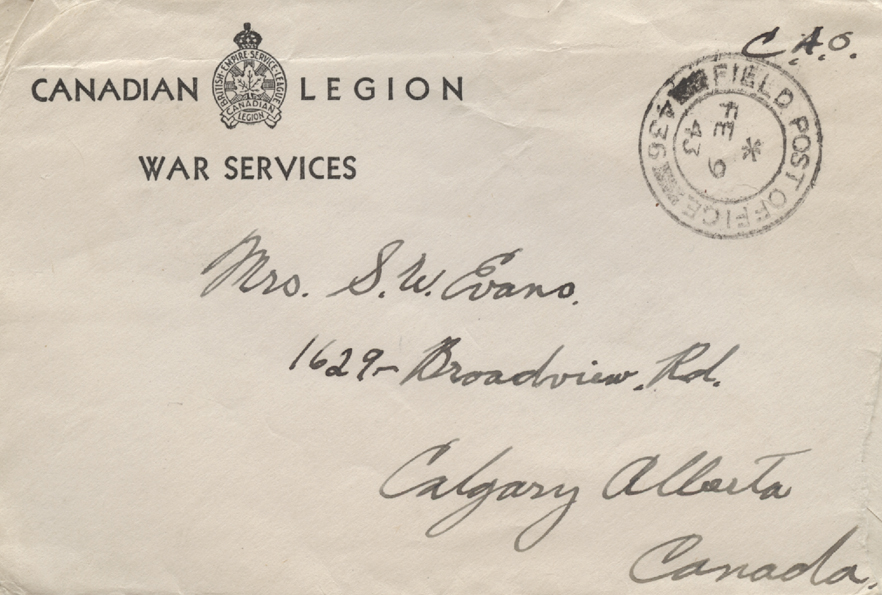 C.A.O.
CANADIAN LEGION
BRITISH·EMPIRE·SERVICE·LEAGUE
CANADIAN
LEGION
WAR SERVICES
FIELD POST OFFICE
436
*
FE 9
43
Mrs. S.W. Evans.
1629- Broadview. Rd.
Calgary Alberta
Canada.